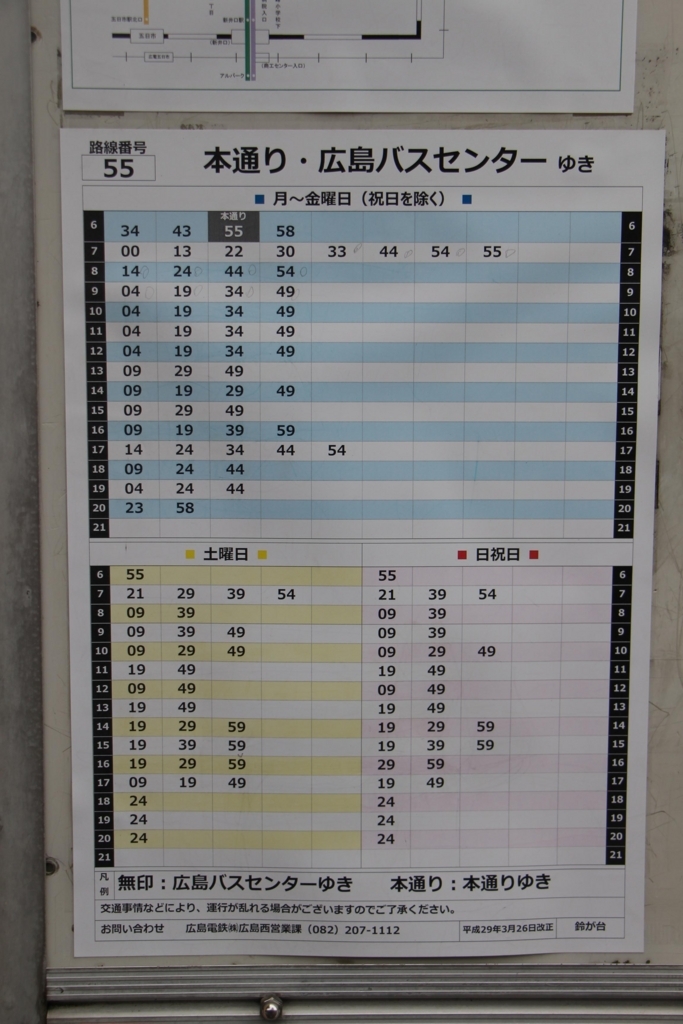 五日市
(新井口)
アルパーク
路線番号
55
本通り・広島バスセンター ゆき
■ 月～金曜日（祝日を除く） ■
本通り
6 34 43 55 58 6
7 00 13 22 30 33 44 54 55 7
8 14 24 44 54 8
9 04 19 34 49 9
10 04 19 34 49 10
11 04 19 34 49 11
12 04 19 34 49 12
13 09 29 49 13
14 09 19 29 49 14
15 09 29 49 15
16 09 19 39 59 16
17 14 24 34 44 54 17
18 09 24 44 18
19 04 24 44 19
20 23 58 20
21 21
■ 土曜日 ■ ■ 日祝日 ■
6 55 55 6
7 21 29 39 54 21 39 54 7
8 09 39 09 39 8
9 09 39 49 09 39 9
10 09 29 49 09 29 49 10
11 19 49 19 49 11
12 09 49 09 49 12
13 19 49 19 49 13
14 19 29 59 19 29 59 14
15 19 39 59 19 39 59 15
16 19 29 59 29 59 16
17 09 19 49 19 49 17
18 24 24 18
19 24 24 19
20 24 24 20
21 21
凡例 無印：広島バスセンターゆき 本通り：本通りゆき
交通事情などにより、運行が乱れる場合がございますのでご了承ください。
お問い合わせ 広島電鉄㈱広島西営業課（082）207-1112 平成29年3月26日改正 鈴が台